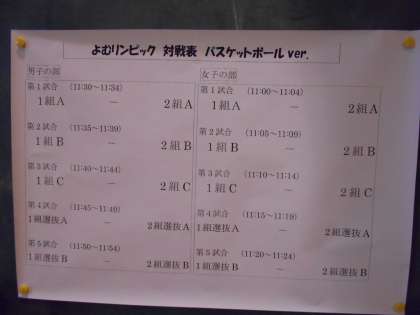 よむリンピック 対戦表 バスケットボール ver.
男子の部
第１試合 (11:30〜11:34)
１組A ー ２組A
第２試合 (11:35〜11:39)
１組B ー ２組B
第３試合 (11:40〜11:44)
１組C ー ２組C
第４試合 (11:45〜11:49)
１組選抜A ー ２組選抜A
第５試合 (11:50〜11:54)
１組選抜B ー ２組選抜B
女子の部
第１試合 (11:00〜11:04)
１組A ー ２組A
第２試合 (11:05〜11:09)
１組B ー ２組B
第３試合 (11:10〜11:14)
１組C ー ２組C
第４試合 (11:15〜11:19)
１組選抜A ー ２組選抜A
第５試合 (11:20〜11:24)
１組選抜B ー ２組選抜B